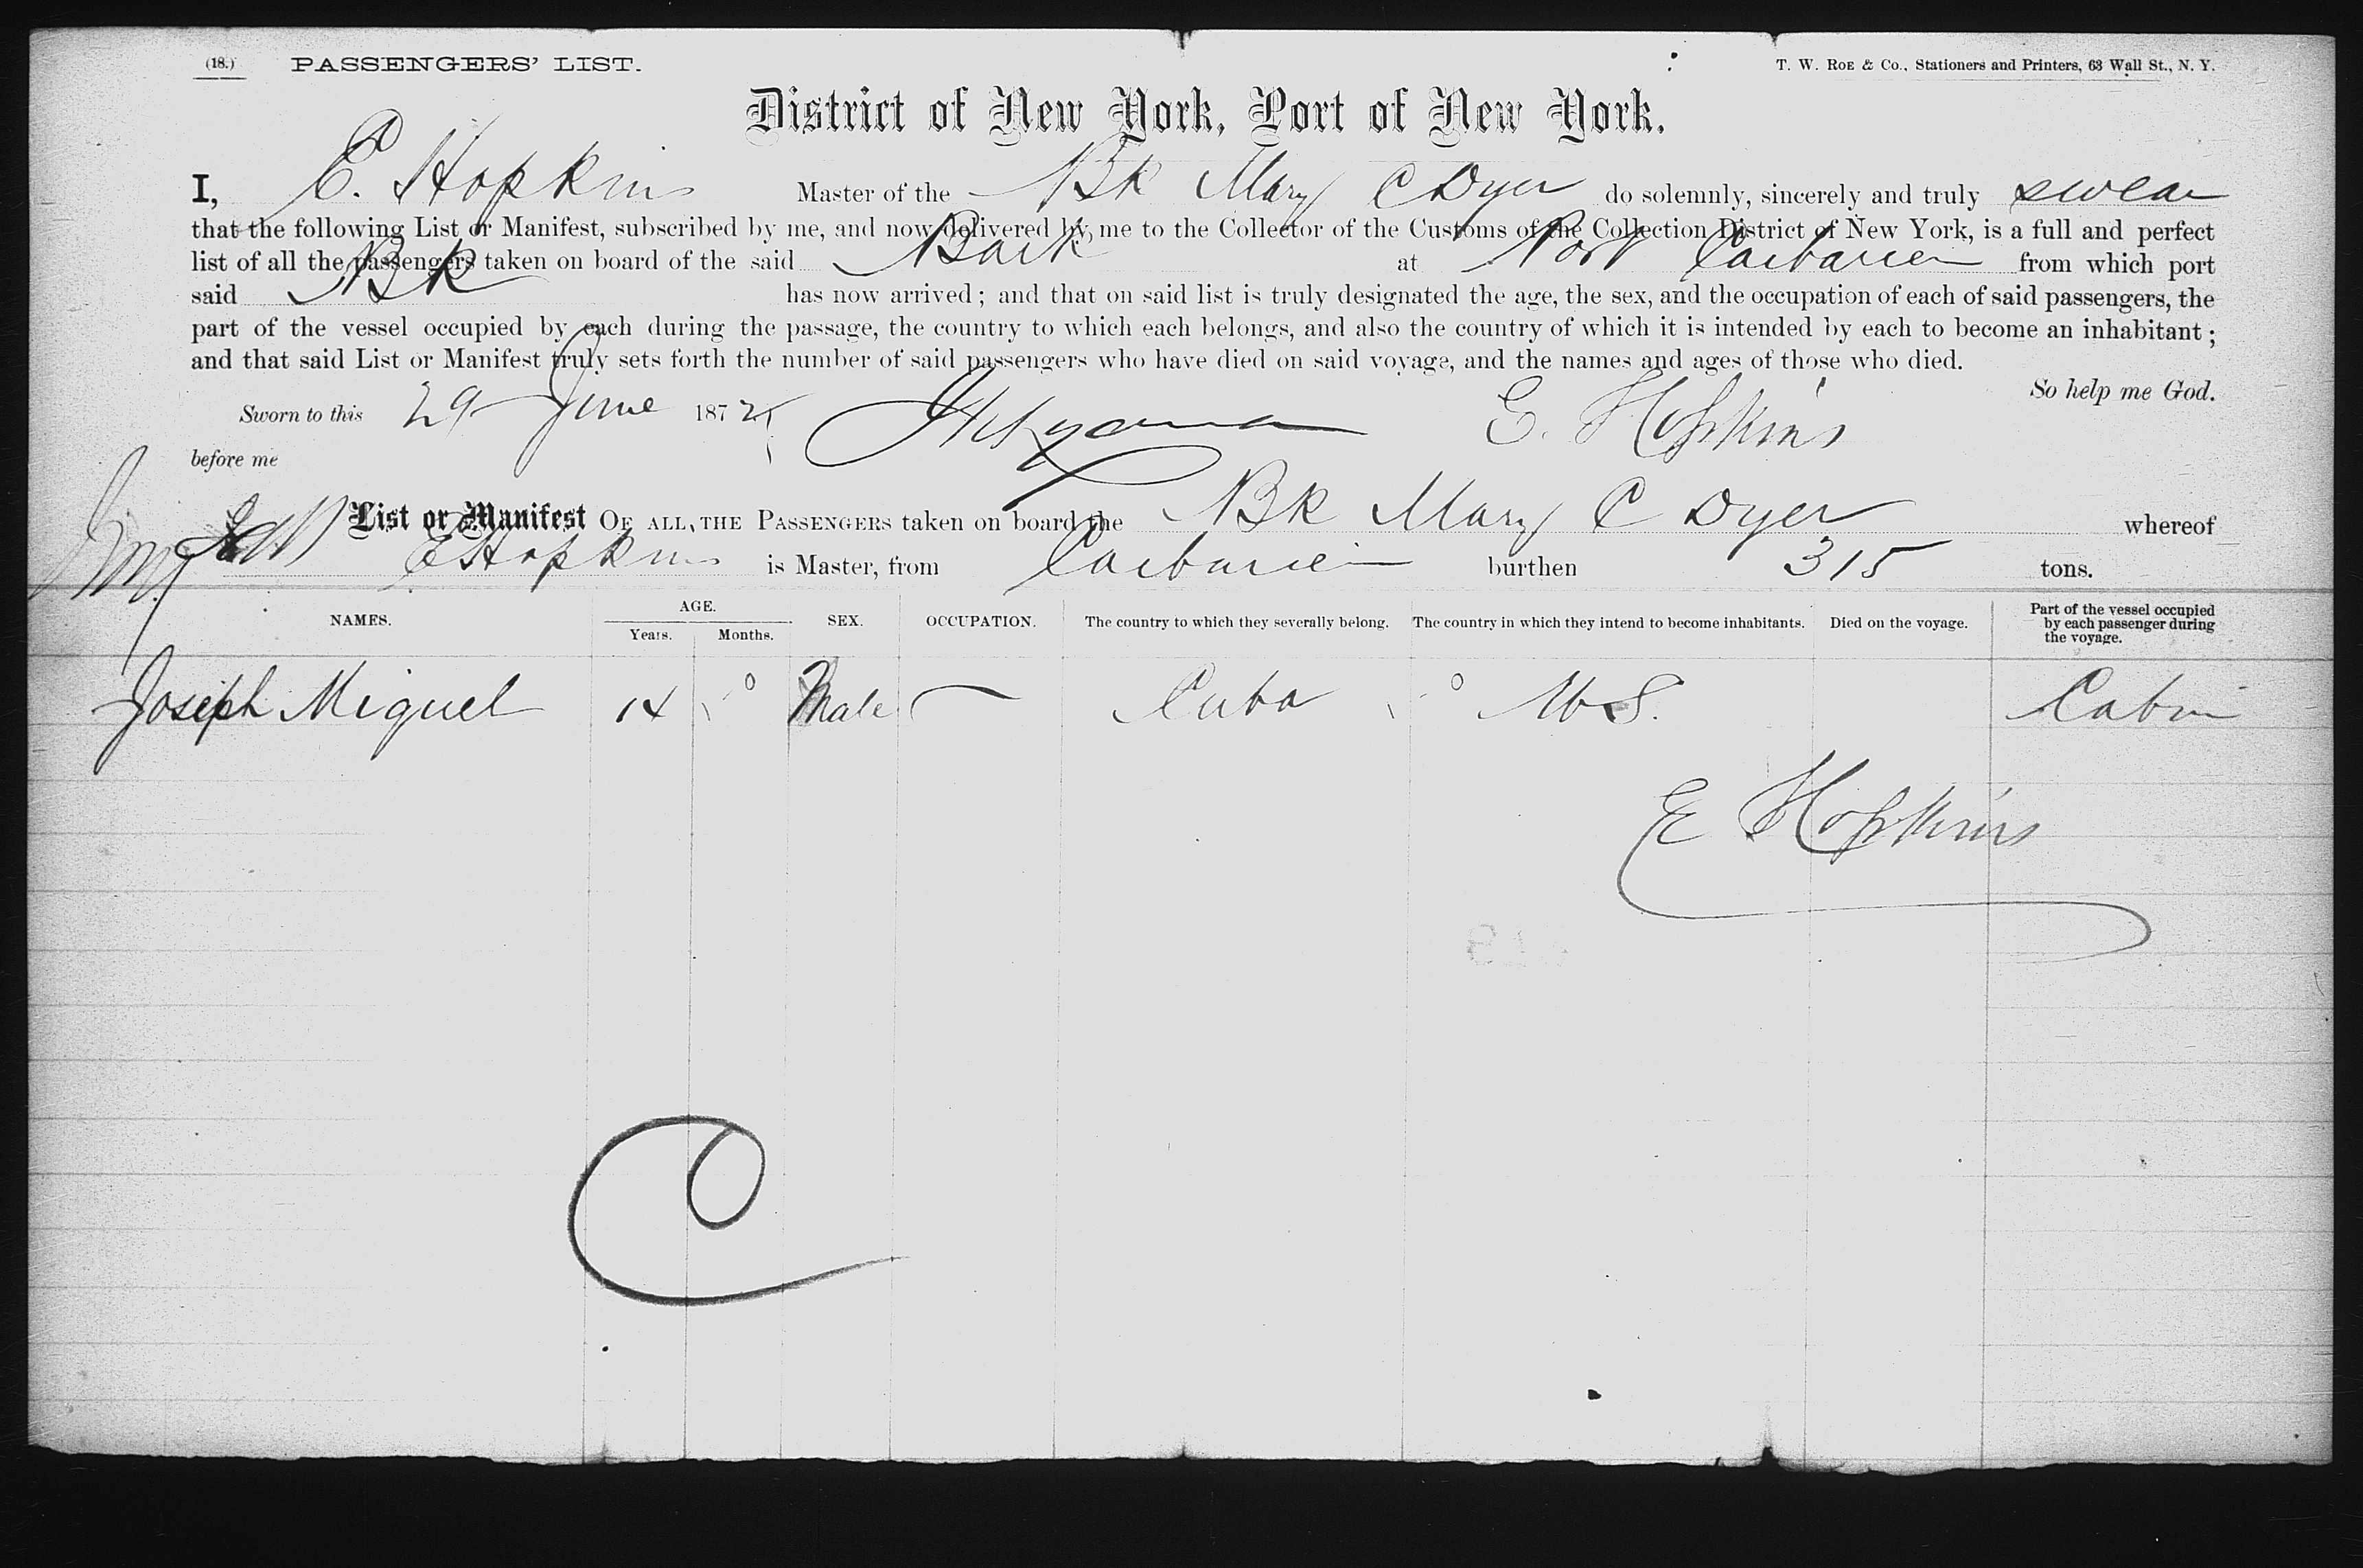 (18.) PASSENGERS' LIST. T. W. ROE & Co., Stationers and Printers, 63 Wall St., N. Y.
District of New York, Port of New York.
I, E. Hopkins Master of the Bk Mary C Dyer do solemnly, sincerely and truly swear
that the following List or Manifest, subscribed by me, and now delivered by me to the Collector of the Customs of the Collection District of New York, is a full and perfect
list of all the passengers taken on board of the said Bark at Port Caibarien from which port
said Bk has now arrived; and that on said list is truly designated the age, the sex, and the occupation of each of said passengers, the
part of the vessel occupied by each during the passage, the country to which each belongs, and also the country of which it is intended by each to become an inhabitant;
and that said List or Manifest truly sets forth the number of said passengers who have died on said voyage, and the names and ages of those who died.
So help me God.
Sworn to this 29 June 1872 E. Hopkins
before me
List or Manifest OF ALL THE PASSENGERS taken on board the Bk Mary C Dyer whereof
E Hopkins is Master, from Caibarien burthen 315 tons.
NAMES. AGE. Years. Months. SEX. OCCUPATION. The country to which they severally belong. The country in which they intend to become inhabitants. Died on the voyage. Part of the vessel occupied by each passenger during the voyage.
Joseph Miguel 14 Male — Cuba U.S. Cabin
E Hopkins